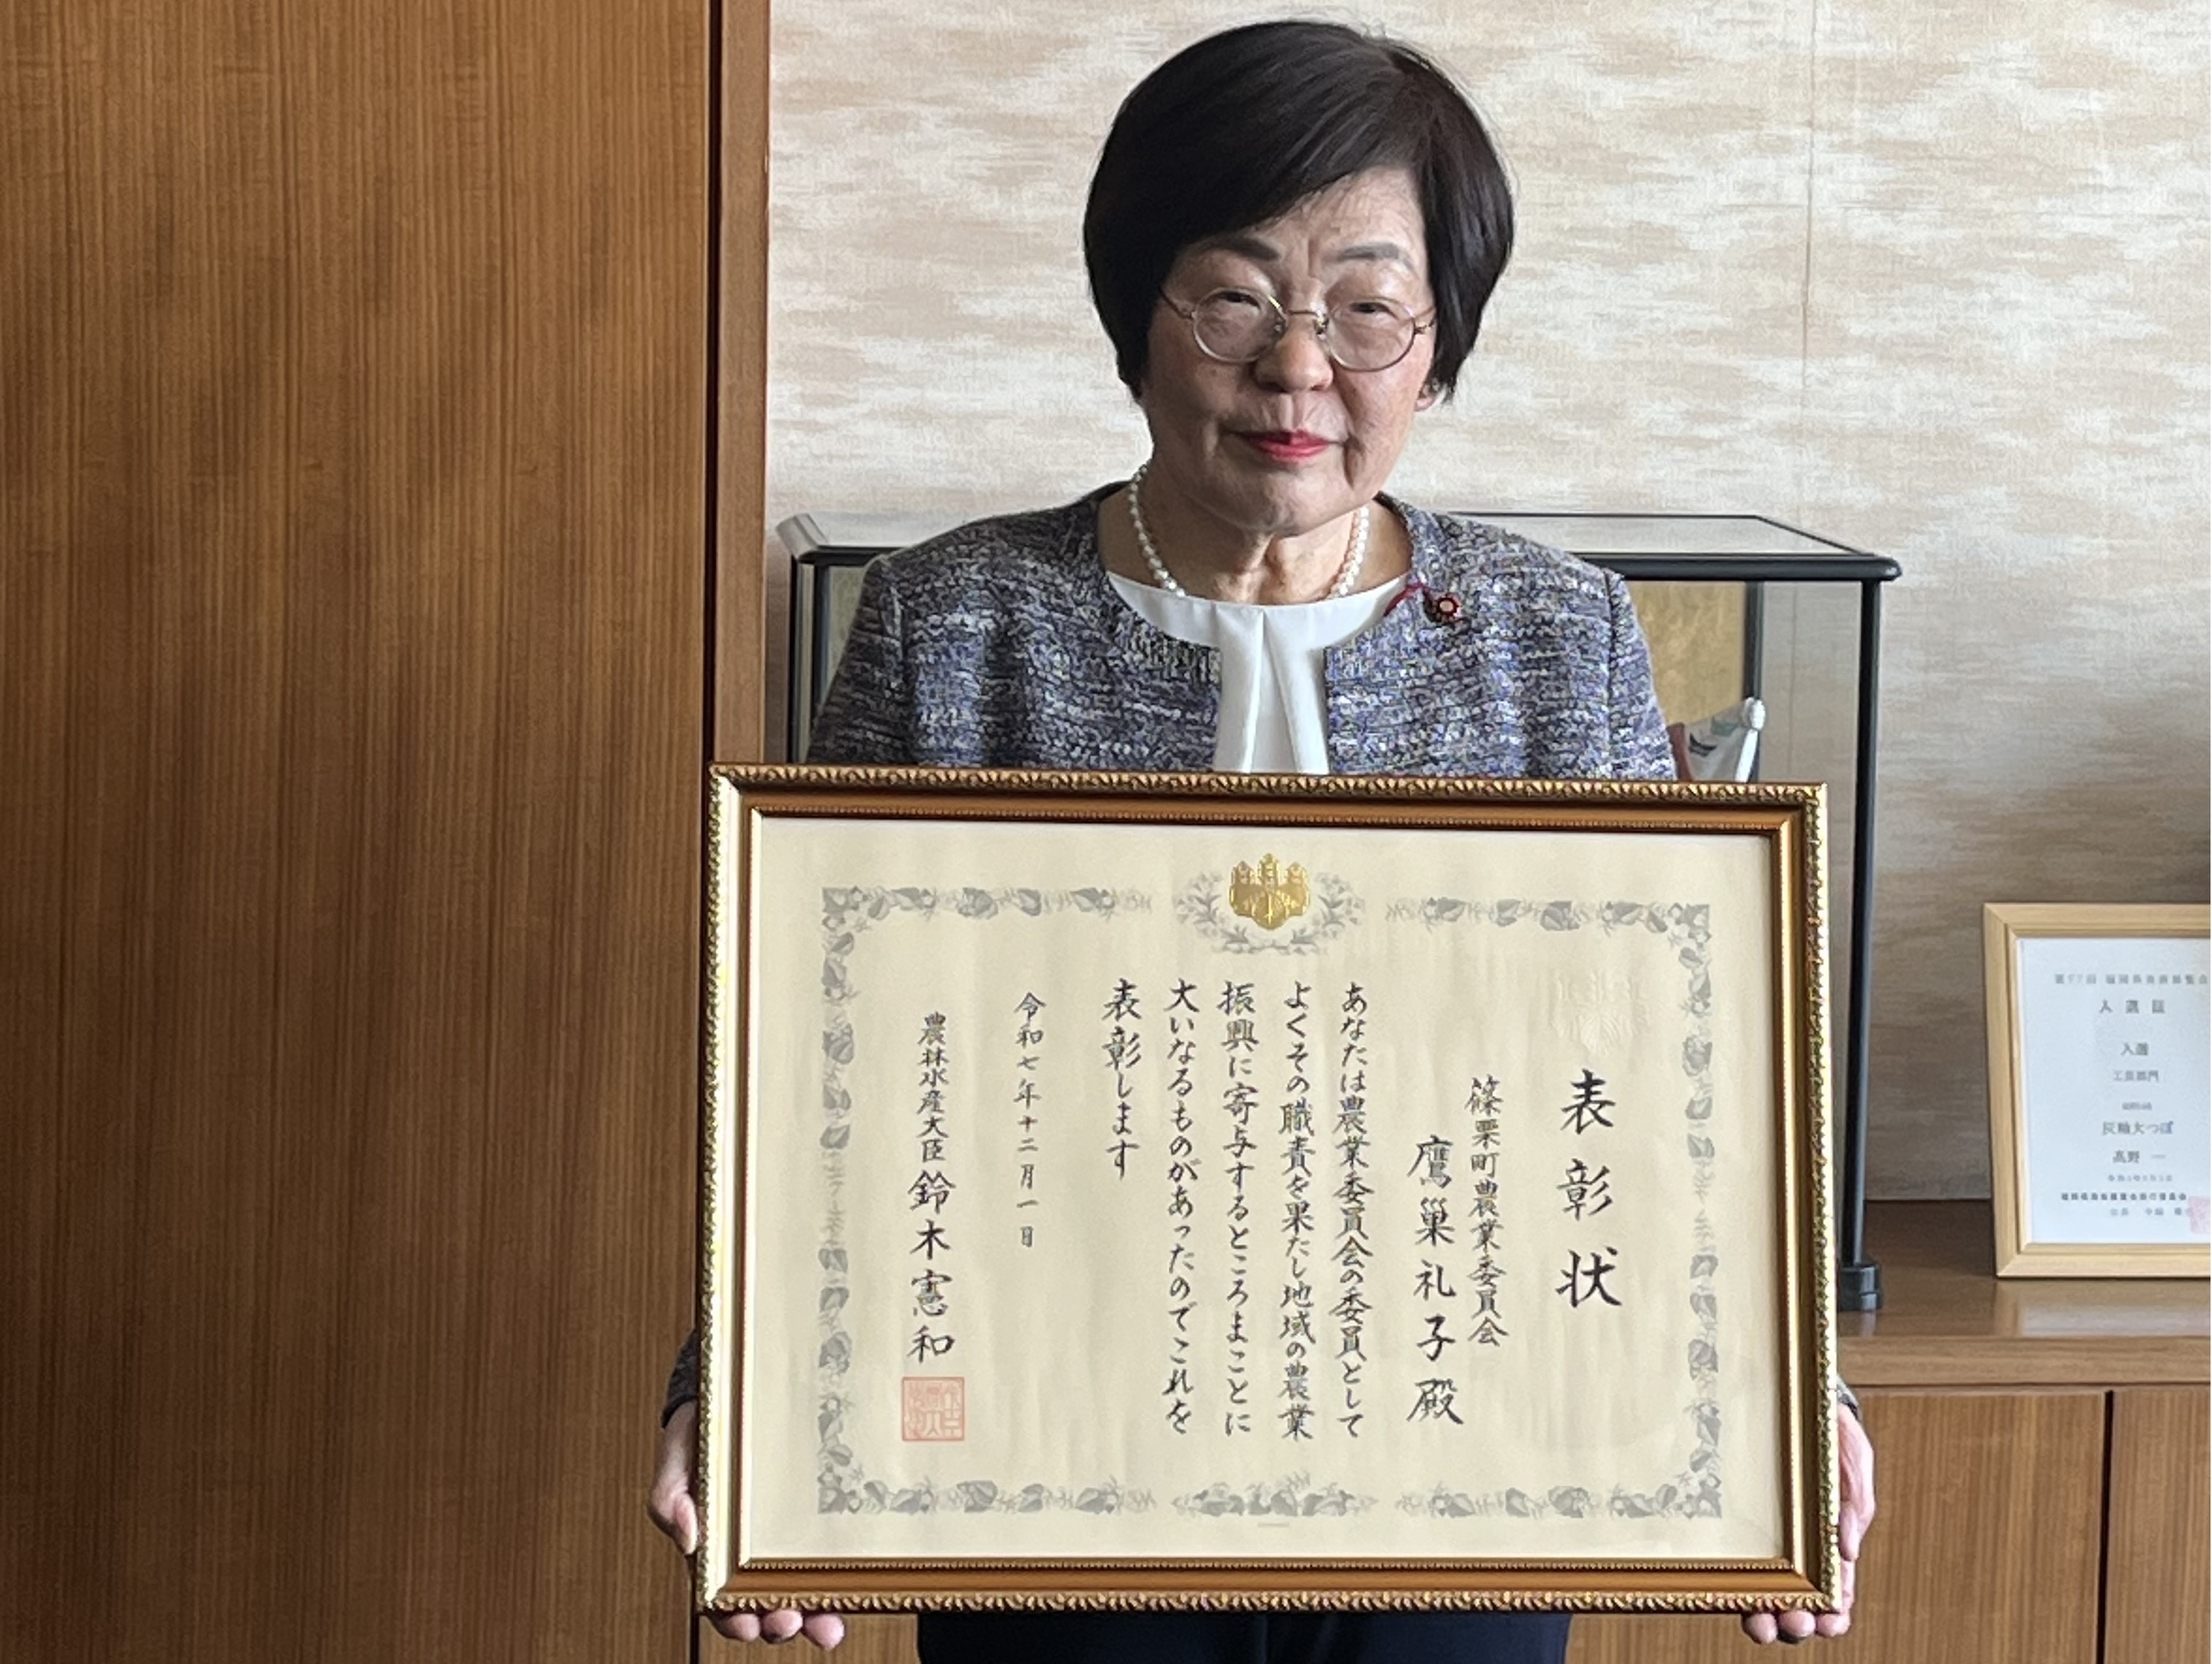 表彰状
篠栗町農業委員会
鷹巢礼子殿
あなたは農業委員会の委員として
よくその職責を果たし地域の農業
振興に寄与するところまことに
大いなるものがあったのでこれを
表彰します
令和七年十二月一日
農林水産大臣 鈴木憲和
入選証
入選
工芸部門
灰釉大つぼ
髙野 一